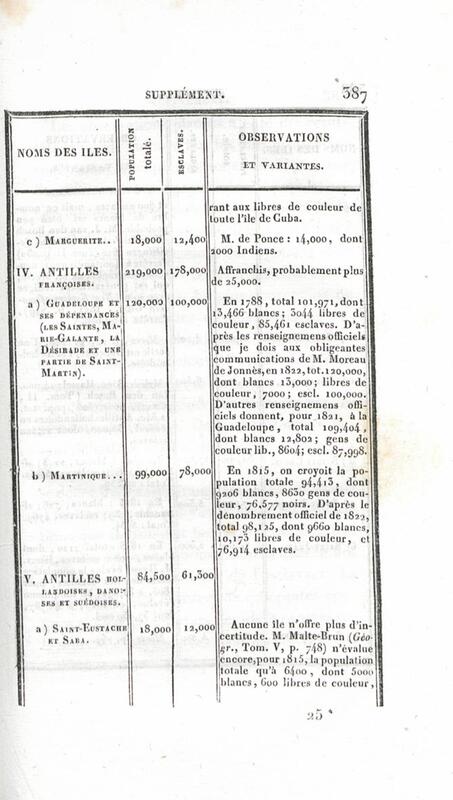 SUPPLÉMENT. 387
NOMS DES ILES.
POPULATION
totale.
ESCLAVES.
OBSERVATIONS
ET VARIANTES.
rant aux libres de couleur de
toute l'île de Cuba.
c) MARGUERITE.. 18,000 12,400 M. de Ponce : 14,000, dont
2000 Indiens.
IV. ANTILLES 219,000 178,000 Affranchis, probablement plus
FRANÇOISES. de 25,000.
a) GUADELOUPE ET 120,000 100,000 En 1788, total 101,971, dont
SES DÉPENDANCES 13,466 blancs; 3044 libres de
(LES SAINTES, MA- couleur, 85,461 esclaves. D'a-
RIE-GALANTE, LA près les renseignemens officiels
DÉSIRADE ET UNE que je dois aux obligeantes
PARTIE DE SAINT- communications de M. Moreau
MARTIN). de Jonnès, en 1822, tot. 120,000,
dont blancs 13,000; libres de
couleur, 7000; escl. 100,000.
D'autres renseignemens offi-
ciels donnent, pour 1821, à la
Guadeloupe, total 109,404,
dont blancs 12,802; gens de
couleur lib., 8604; escl. 87,998.
b) MARTINIQUE... 99,000 78,000 En 1815, on croyoit la po-
pulation totale 94,413, dont
9206 blancs, 8630 gens de cou-
leur, 76,577 noirs. D'après le
dénombrement officiel de 1822,
total 98,125, dont 9660 blancs,
10,173 libres de couleur, et
76,914 esclaves.
V. ANTILLES HOL- 84,500 61,300
LANDOISES, DANOI-
SES ET SUÉDOISES.
a) SAINT-EUSTACHE 18,000 12,000 Aucune île n'offre plus d'in-
ET SABA. certitude. M. Malte-Brun (Géo-
gr., Tom. V, p. 748) n'évalue
encore, pour 1815, la population
totale qu'à 6400, dont 5000
blancs, 600 libres de couleur,
25 *